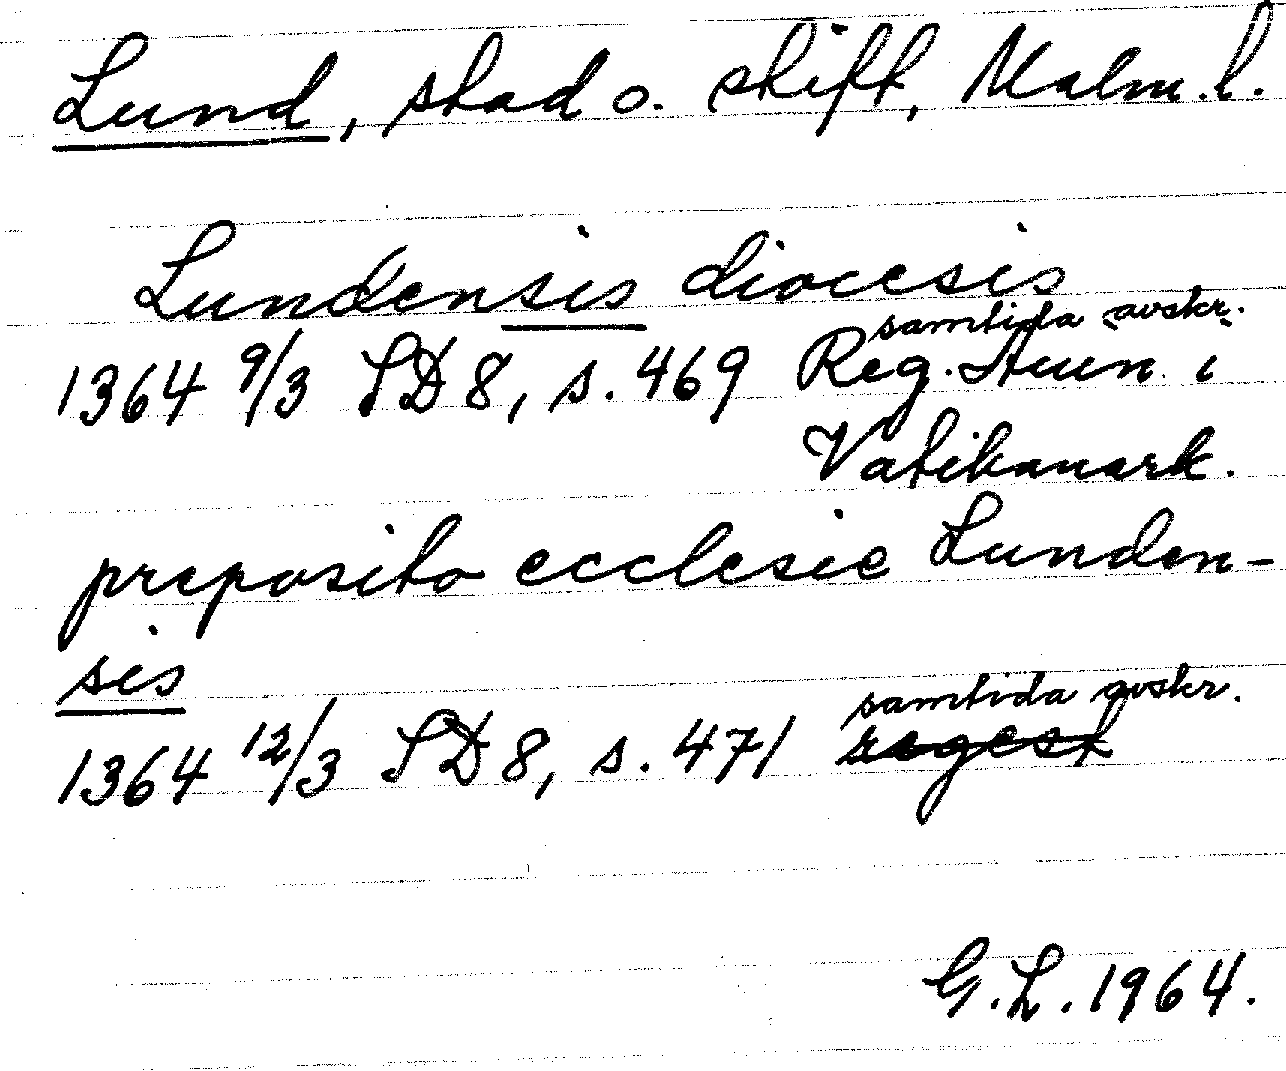 Lund, stad o. stift, Malm. l.
Lundensis diocesis
samtida avskr.
1364 9/3 SD 8, s. 469 Reg. Aven i
Vatikanark.
preposito ecclesie Lunden-
sis
samtida avskr.
1364 12/3 SD 8, s. 471 regest
G. L. 1964.